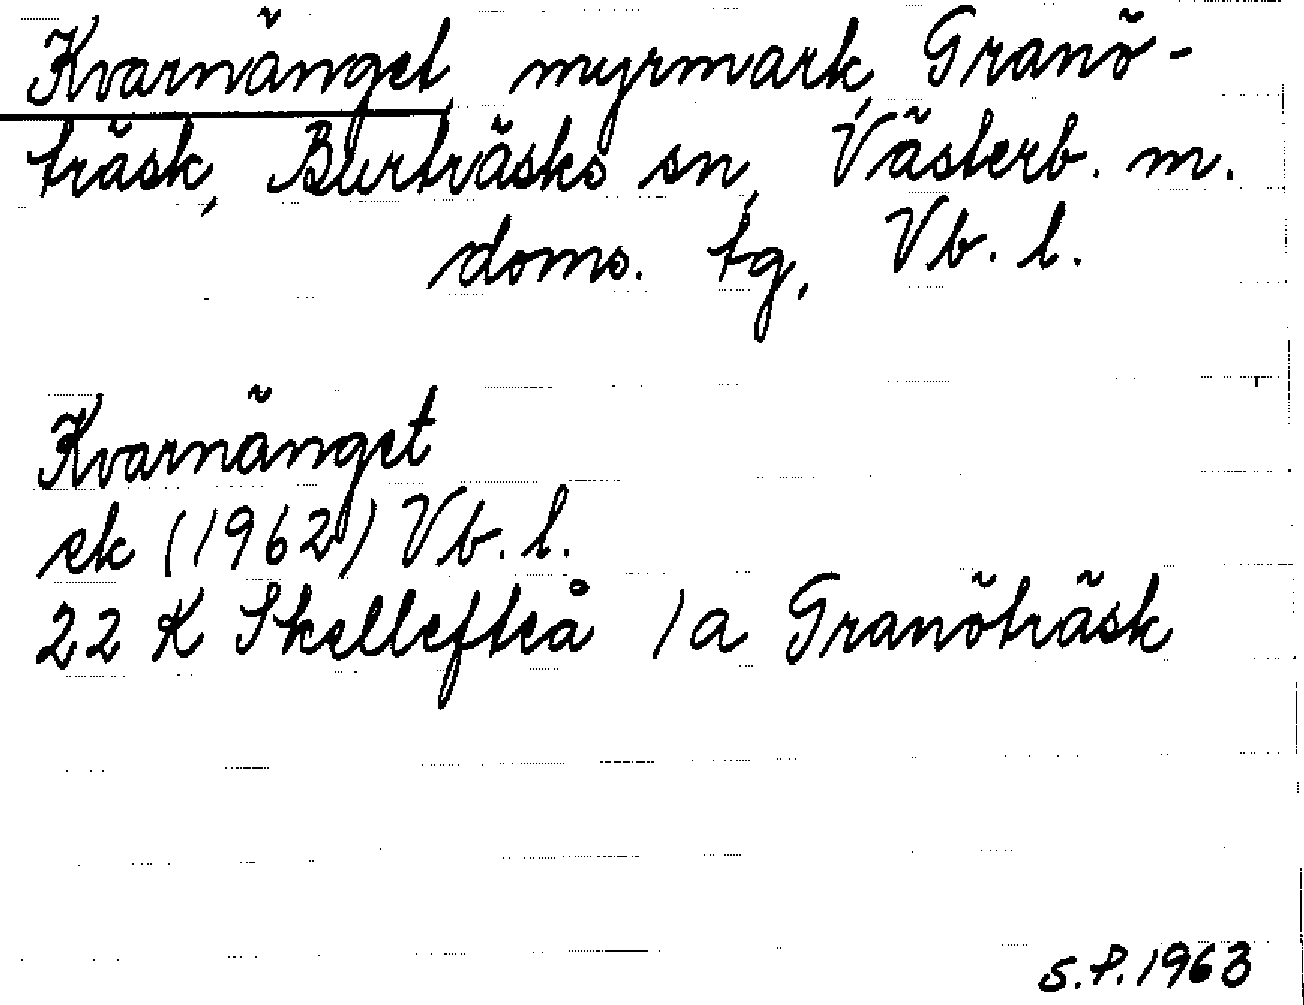 Kvarnänget, myrmark, Granö-
träsk, Burträsks sn, Västerb. m.
doms. tg, Vb. l.
Kvarnänget
ek (1962) Vb. l.
22 K Skellefteå 1a Granöträsk
S.P. 1963